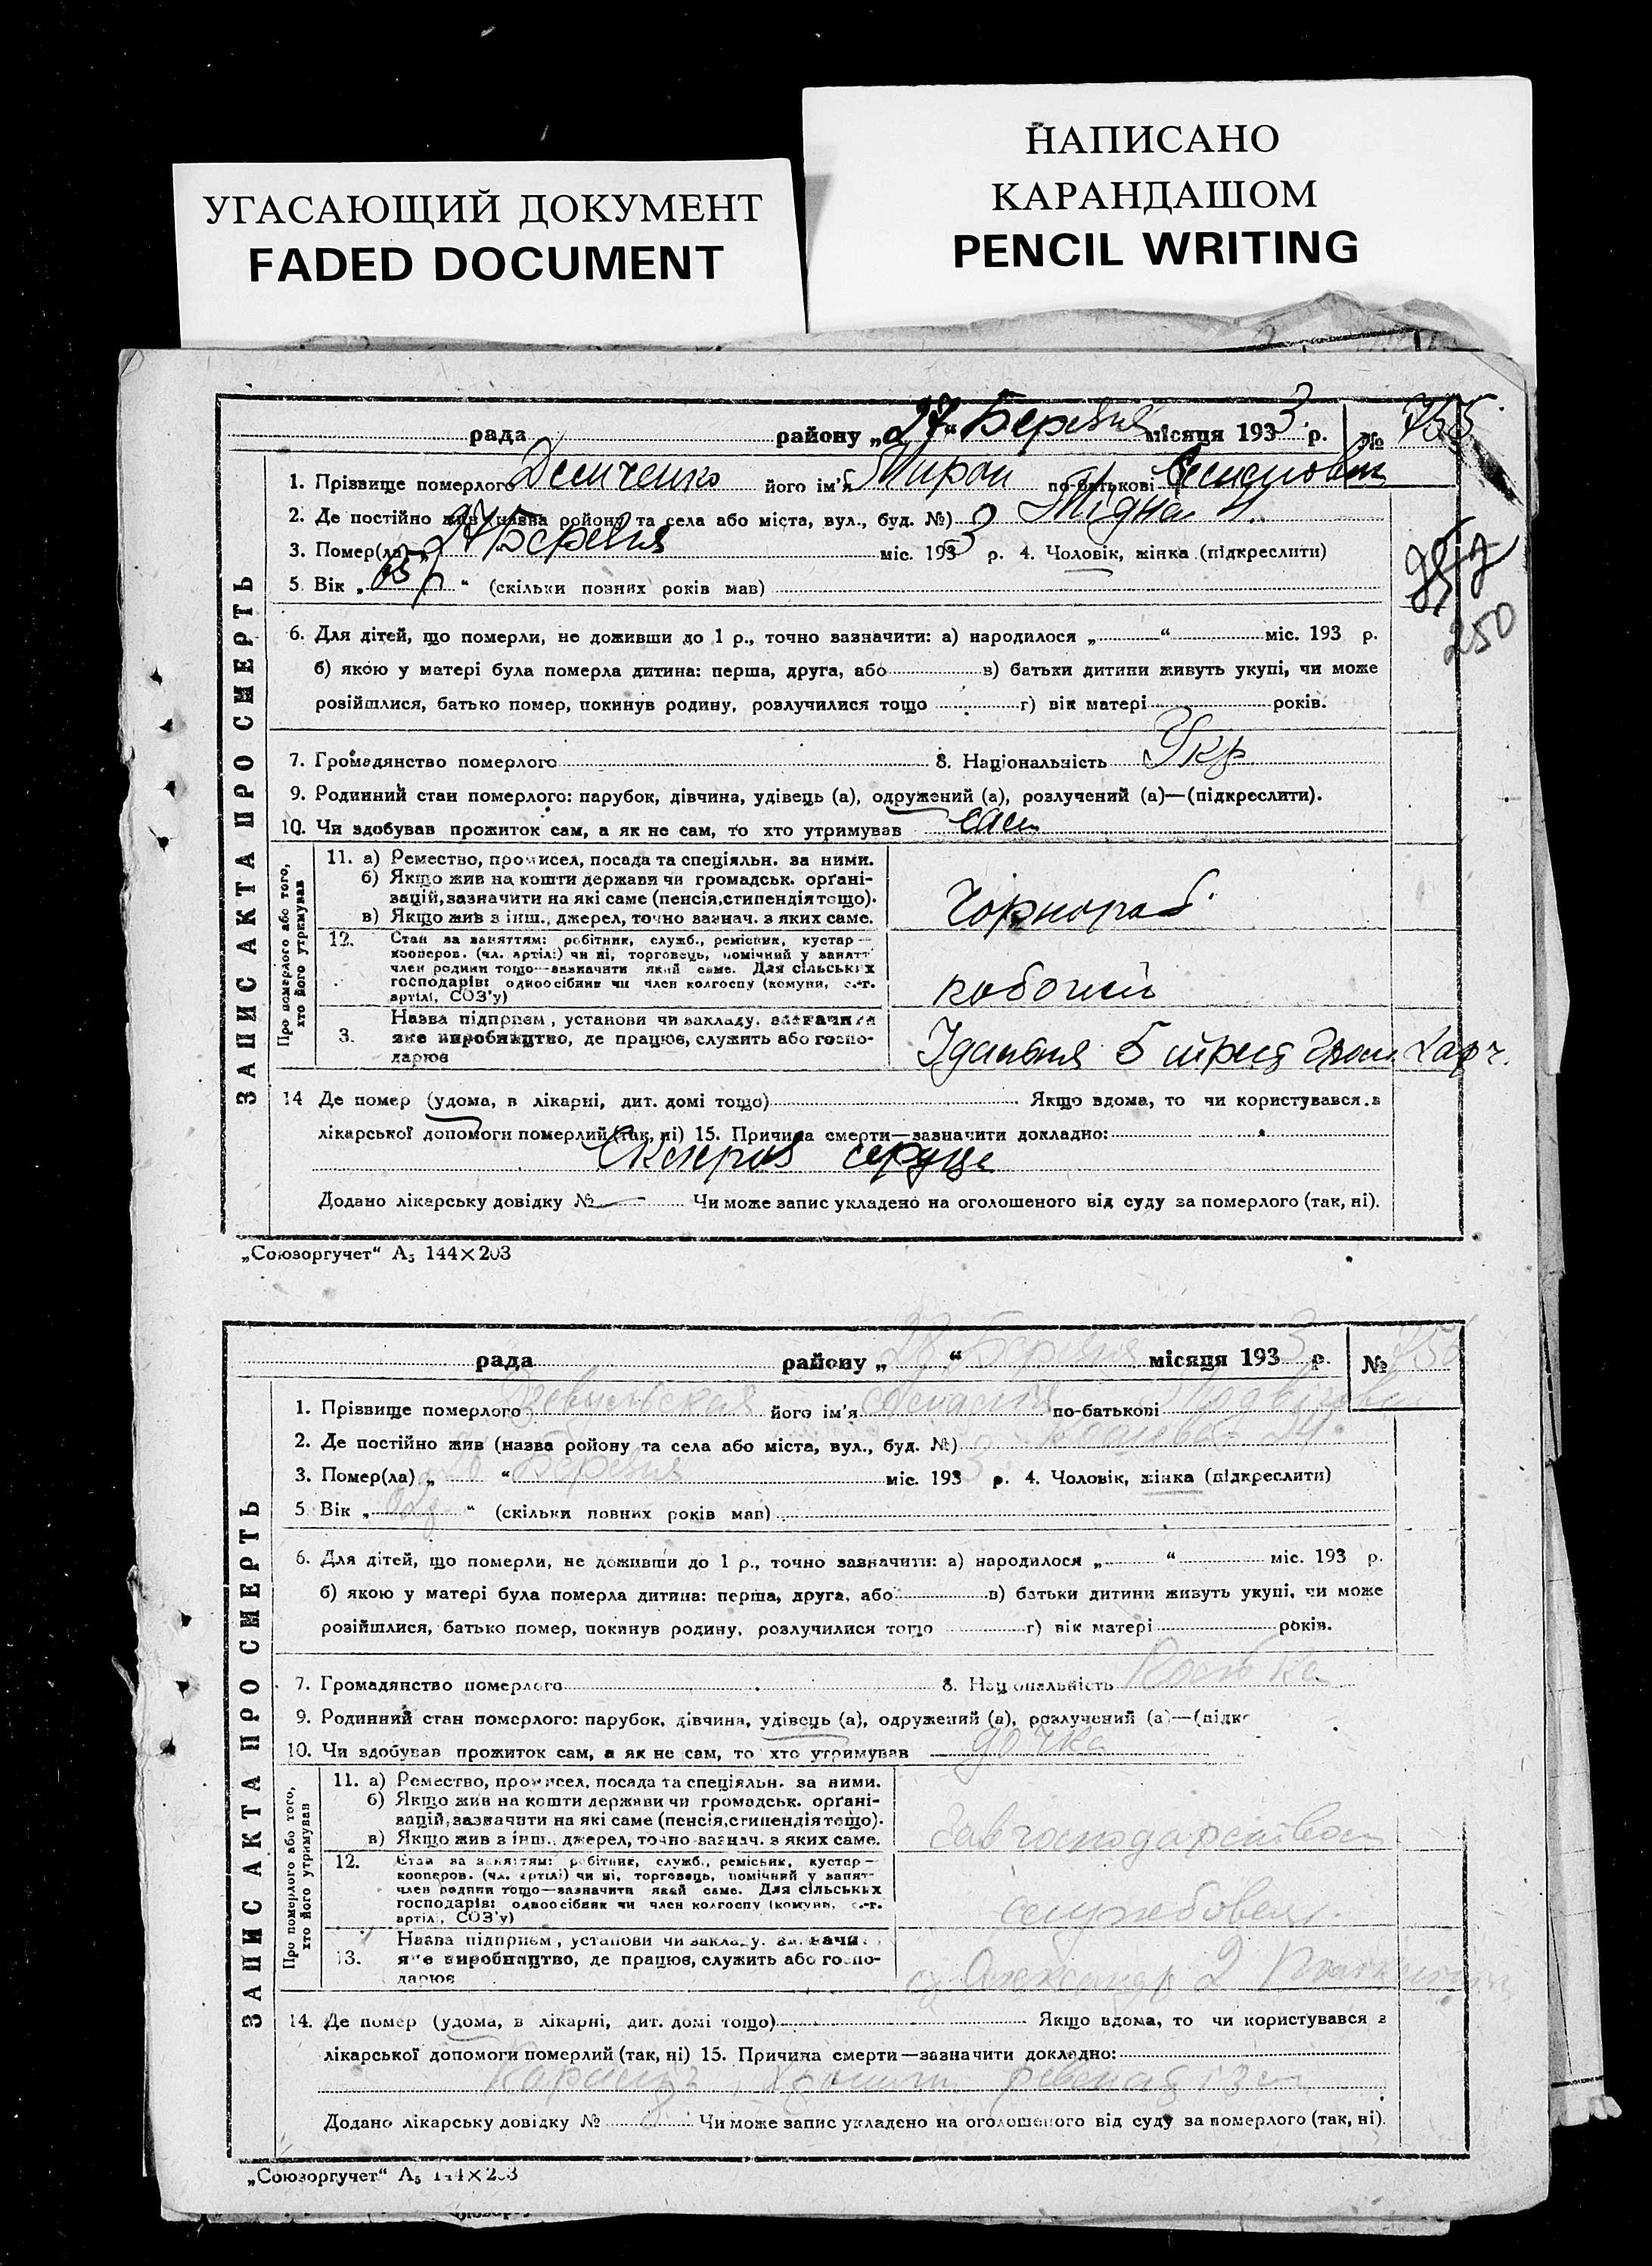 НАПИСАНО
КАРАНДАШОМ
PENCIL WRITING
УГАСАЮЩИЙ ДОКУМЕНТ
FADED DOCUMENT
рада району „27“ Березня місяця 1933 р. № 755
ЗАПИС АКТА ПРО СМЕРТЬ
1. Прізвище померлого Демченко його ім'я Мирон по-батькові
2. Де постійно жив (назва району та села або міста, вул., буд. №)
3. Помер(ла) „ Березня міс. 1933 р. 4. Чоловік, жінка (підкреслити)
5 Вік „ “ (скільки повних років мав)
250
6. Для дітей, що померли, не доживши до 1 р., точно зазначити: а) народилося „ “ міс. 193 р.
б) якою у матері була померла дитина: перша, друга, або в) батьки дитини живуть укупі, чи може
розійшлися, батько помер, покинув родину, розлучилися тощо г) вік матері років.
7. Громадянство померлого 8. Національність Укр
9. Родинний стан померлого: парубок, дівчина, удівець (а), одружений (а), розлучений (а)—(підкреслити).
10. Чи здобував прожиток сам, а як не сам, то хто утримував сам
Про померлого або того, хто його утримував
11. а) Ремество, промисел, посада та спеціяльн. за ними.
б) Якщо жив на кошти держави чи громадськ. орґані-
зацій, зазначити на які саме (пенсія, стипендія тощо).
в) Якщо жив з інш., джерел, точно зазнач. з яких саме.
Чорнораб.
12. Стан за заняттям: робітник, служб., ремісник, кустар—
кооперов. (чл. артілі) чи ні, торговець, помічний у занятт
член родини тощо—зазначити який саме. Для сільських
господарів: одноосібник чи член колгоспу (комуни, с.-г.
артілі, СОЗ'у)
робочий
3. Назва підприєм, установи чи закладу, зазначити
яке виробництво, де працює, служить або госпо-
дарює
Їдальня 5 Харч.
14 Де помер (удома, в лікарні, дит. домі тощо) Якщо вдома, то чи користувався з
лікарської допомоги померлий (так, ні) 15. Причина смерти—зазначити докладно:
серця
Додано лікарську довідку № Чи може запис укладено на оголошеного від суду за померлого (так, ні).
„Союзоргучет“ А5 144×203
рада району „28“ Березня місяця 1933 р. № 756
ЗАПИС АКТА ПРО СМЕРТЬ
1. Прізвище померлого його ім'я по-батькові
2. Де постійно жив (назва району та села або міста, вул., буд. №) 24
3. Помер(ла) „ “ Березня міс. 1933 р. 4. Чоловік, жінка (підкреслити)
5 Вік „ “ (скільки повних років мав)
6. Для дітей, що померли, не доживши до 1 р., точно зазначити: а) народилося „ “ міс. 193 р.
б) якою у матері була померла дитина: перша, друга, або в) батьки дитини живуть укупі, чи може
розійшлися, батько помер, покинув родину, розлучилися тощо г) вік матері років.
7. Громадянство померлого 8. Національність
9. Родинний стан померлого: парубок, дівчина, удівець (а), одружений (а), розлучений (а)—(підкс
10. Чи здобував прожиток сам, а як не сам, то хто утримував дочка
Про померлого або того, хто його утримував
11. а) Ремество, промисел, посада та спеціяльн. за ними.
б) Якщо жив на кошти держави чи громадськ. орґані-
зацій, зазначити на які саме (пенсія, стипендія тощо).
в) Якщо жив з інш., джерел, точно зазнач. з яких саме.
Завгосподарством
12. Стан за заняттям: робітник, служб., ремісник, кустар—
кооперов. (чл. артілі) чи ні, торговець, помічний у занят
член родини тощо—зазначити який саме. Для сільських
господарів: одноосібник чи член колгоспу (комуни, с.-г.
артілі, СОЗ'у)
13. Назва підприєм, установи чи закладу, зазначи
яке виробництво, де працює, служить або госпо-
дарює
14. Де помер (удома, в лікарні, дит. домі тощо) Якщо вдома, то чи користувався з
лікарської допомоги померлий (так, ні) 15. Причина смерти—зазначити докладно:
Додано лікарську довідку № Чи може запис укладено на оголошеного від суду за померлого (так, ні).
„Союзоргучет“ А5 144×203